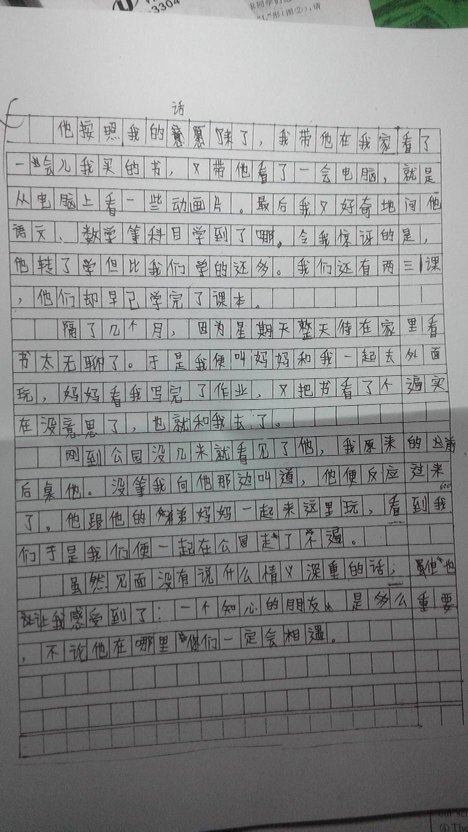 3304
话
他按照我的意愿来了，我带他在我家看了
一会儿我买的书，又带他看了一会电脑，就是
从电脑上看一些动画片。最后我又好奇地问他
语文、数学等科目学到了哪。令我惊讶的是，
他转了学但比我们学的还多。我们还有两三课
，他们却早已学完了课本。
隔了几个月，因为星期天整天待在家里看
书太无聊了。于是我便叫妈妈和我一起去外面
玩，妈妈看我写完了作业，又把书看了个遍实
在没意思了，也就和我去了。
刚到公园没几米就看见了他，我原来的
后桌他。没等我向他那边叫道，他便反应过来
了。他跟他的弟弟妈妈一起来这里玩，看到我
们于是我们便一起在公园走了个遍。
虽然见面没有说什么情义深重的话，也
让我感受到了：一个知心的朋友是多么重要
，不论他在哪里你们一定会相遇。